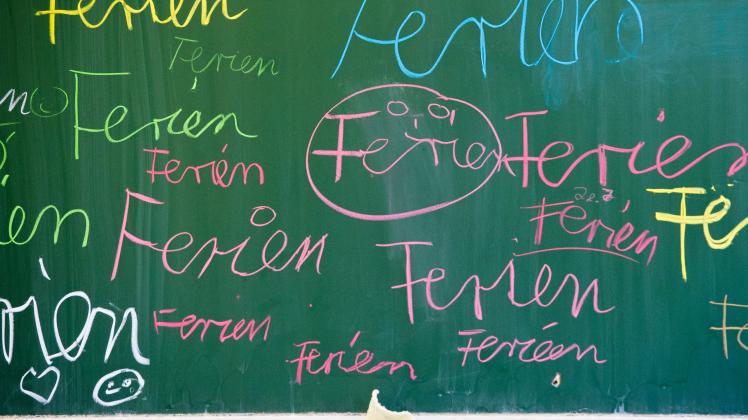 Ferien
Ferien
Ferien
Ferien
Ferien
Ferien
Ferien
Ferien
Ferien
en
Ferien
Fe
Ferien
rien
Ferien
Ferien
Ferien